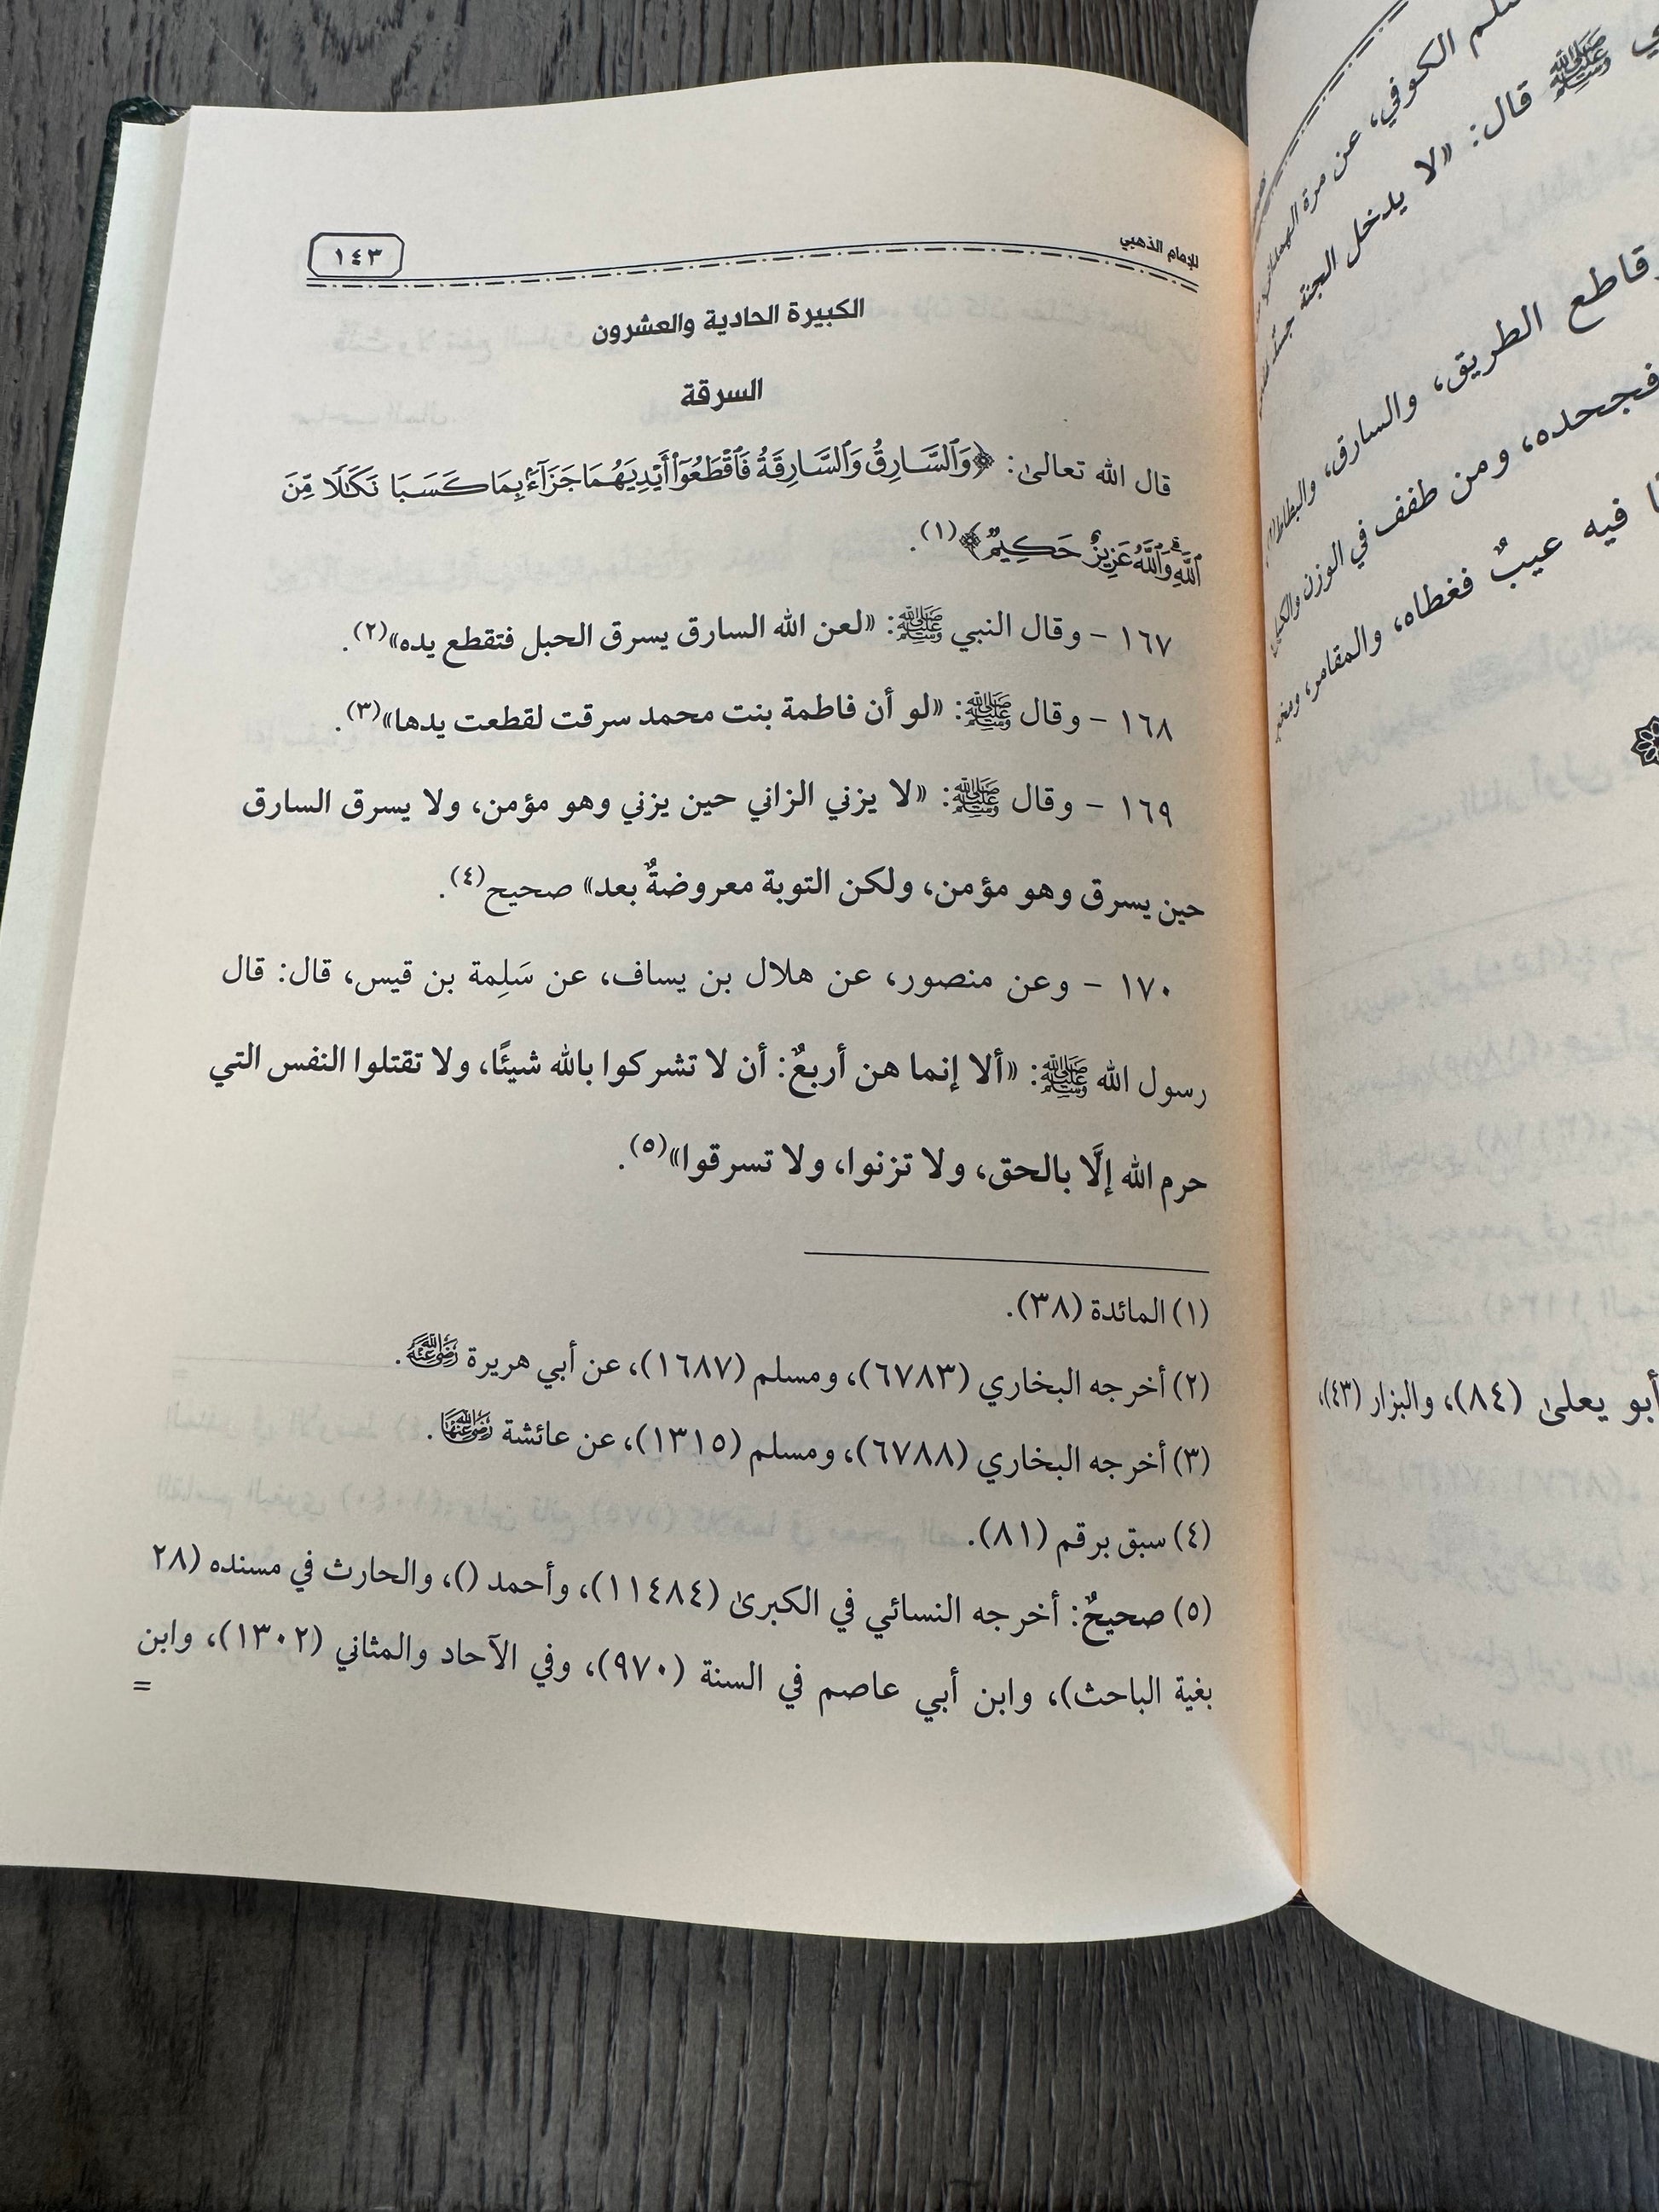 للإمام الذهبي
١٤٣
الكبيرة الحادية والعشرون
السرقة
قال الله تعالىٰ: ﴿وَٱلسَّارِقُ وَٱلسَّارِقَةُ فَٱقۡطَعُوٓاْ أَيۡدِيَهُمَا جَزَآءَۢ بِمَا كَسَبَا نَكَٰلٗا مِّنَ
ٱللَّهِۗ وَٱللَّهُ عَزِيزٌ حَكِيمٞ﴾(١).
١٦٧ - وقال النبي ﷺ: «لعن الله السارق يسرق الحبل فتقطع يده»(٢).
١٦٨ - وقال ﷺ: «لو أن فاطمة بنت محمد سرقت لقطعت يدها»(٣).
١٦٩ - وقال ﷺ: «لا يزني الزاني حين يزني وهو مؤمن، ولا يسرق السارق
حين يسرق وهو مؤمن، ولكن التوبة معروضةٌ بعد» صحيح(٤).
١٧٠ - وعن منصور، عن هلال بن يساف، عن سَلِمة بن قيس، قال: قال
رسول الله ﷺ: «ألا إنما هن أربعٌ: أن لا تشركوا بالله شيئًا، ولا تقتلوا النفس التي
حرم الله إلَّا بالحق، ولا تزنوا، ولا تسرقوا»(٥).
(١) المائدة (٣٨).
(٢) أخرجه البخاري (٦٧٨٣)، ومسلم (١٦٨٧)، عن أبي هريرة رضي الله عنه.
(٣) أخرجه البخاري (٦٧٨٨)، ومسلم (١٣١٥)، عن عائشة رضي الله عنها.
(٤) سبق برقم (٨١).
(٥) صحيحٌ: أخرجه النسائي في الكبرىٰ (١١٤٨٤)، وأحمد ()، والحارث في مسنده (٢٨
بغية الباحث)، وابن أبي عاصم في السنة (٩٧٠)، وفي الآحاد والمثاني (١٣٠٢)، وابن
=
الكوفي، عن مرة
ﷺ قال: «لا يدخل الجنة
وقاطع الطريق، والسارق،
فجحده، ومن طفف في الوزن والكيل
فيه عيبٌ فغطاه، والمقامر،
أبو يعلىٰ (٨٤)، والبزار (٤٣)،